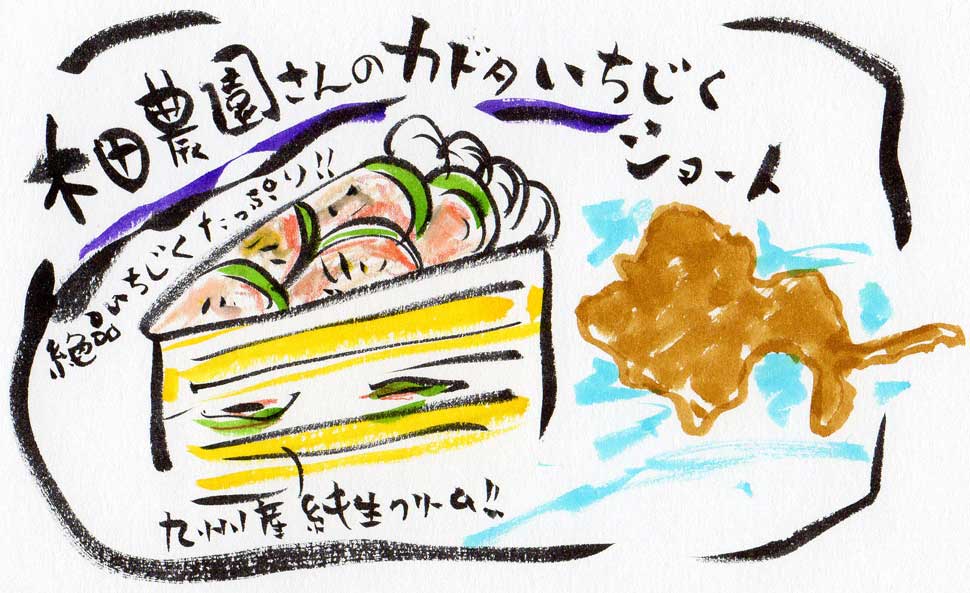 木田農園さんのカドタいちじく
ショート
絶品いちじくたっぷり!!
九州産純生クリーム!!